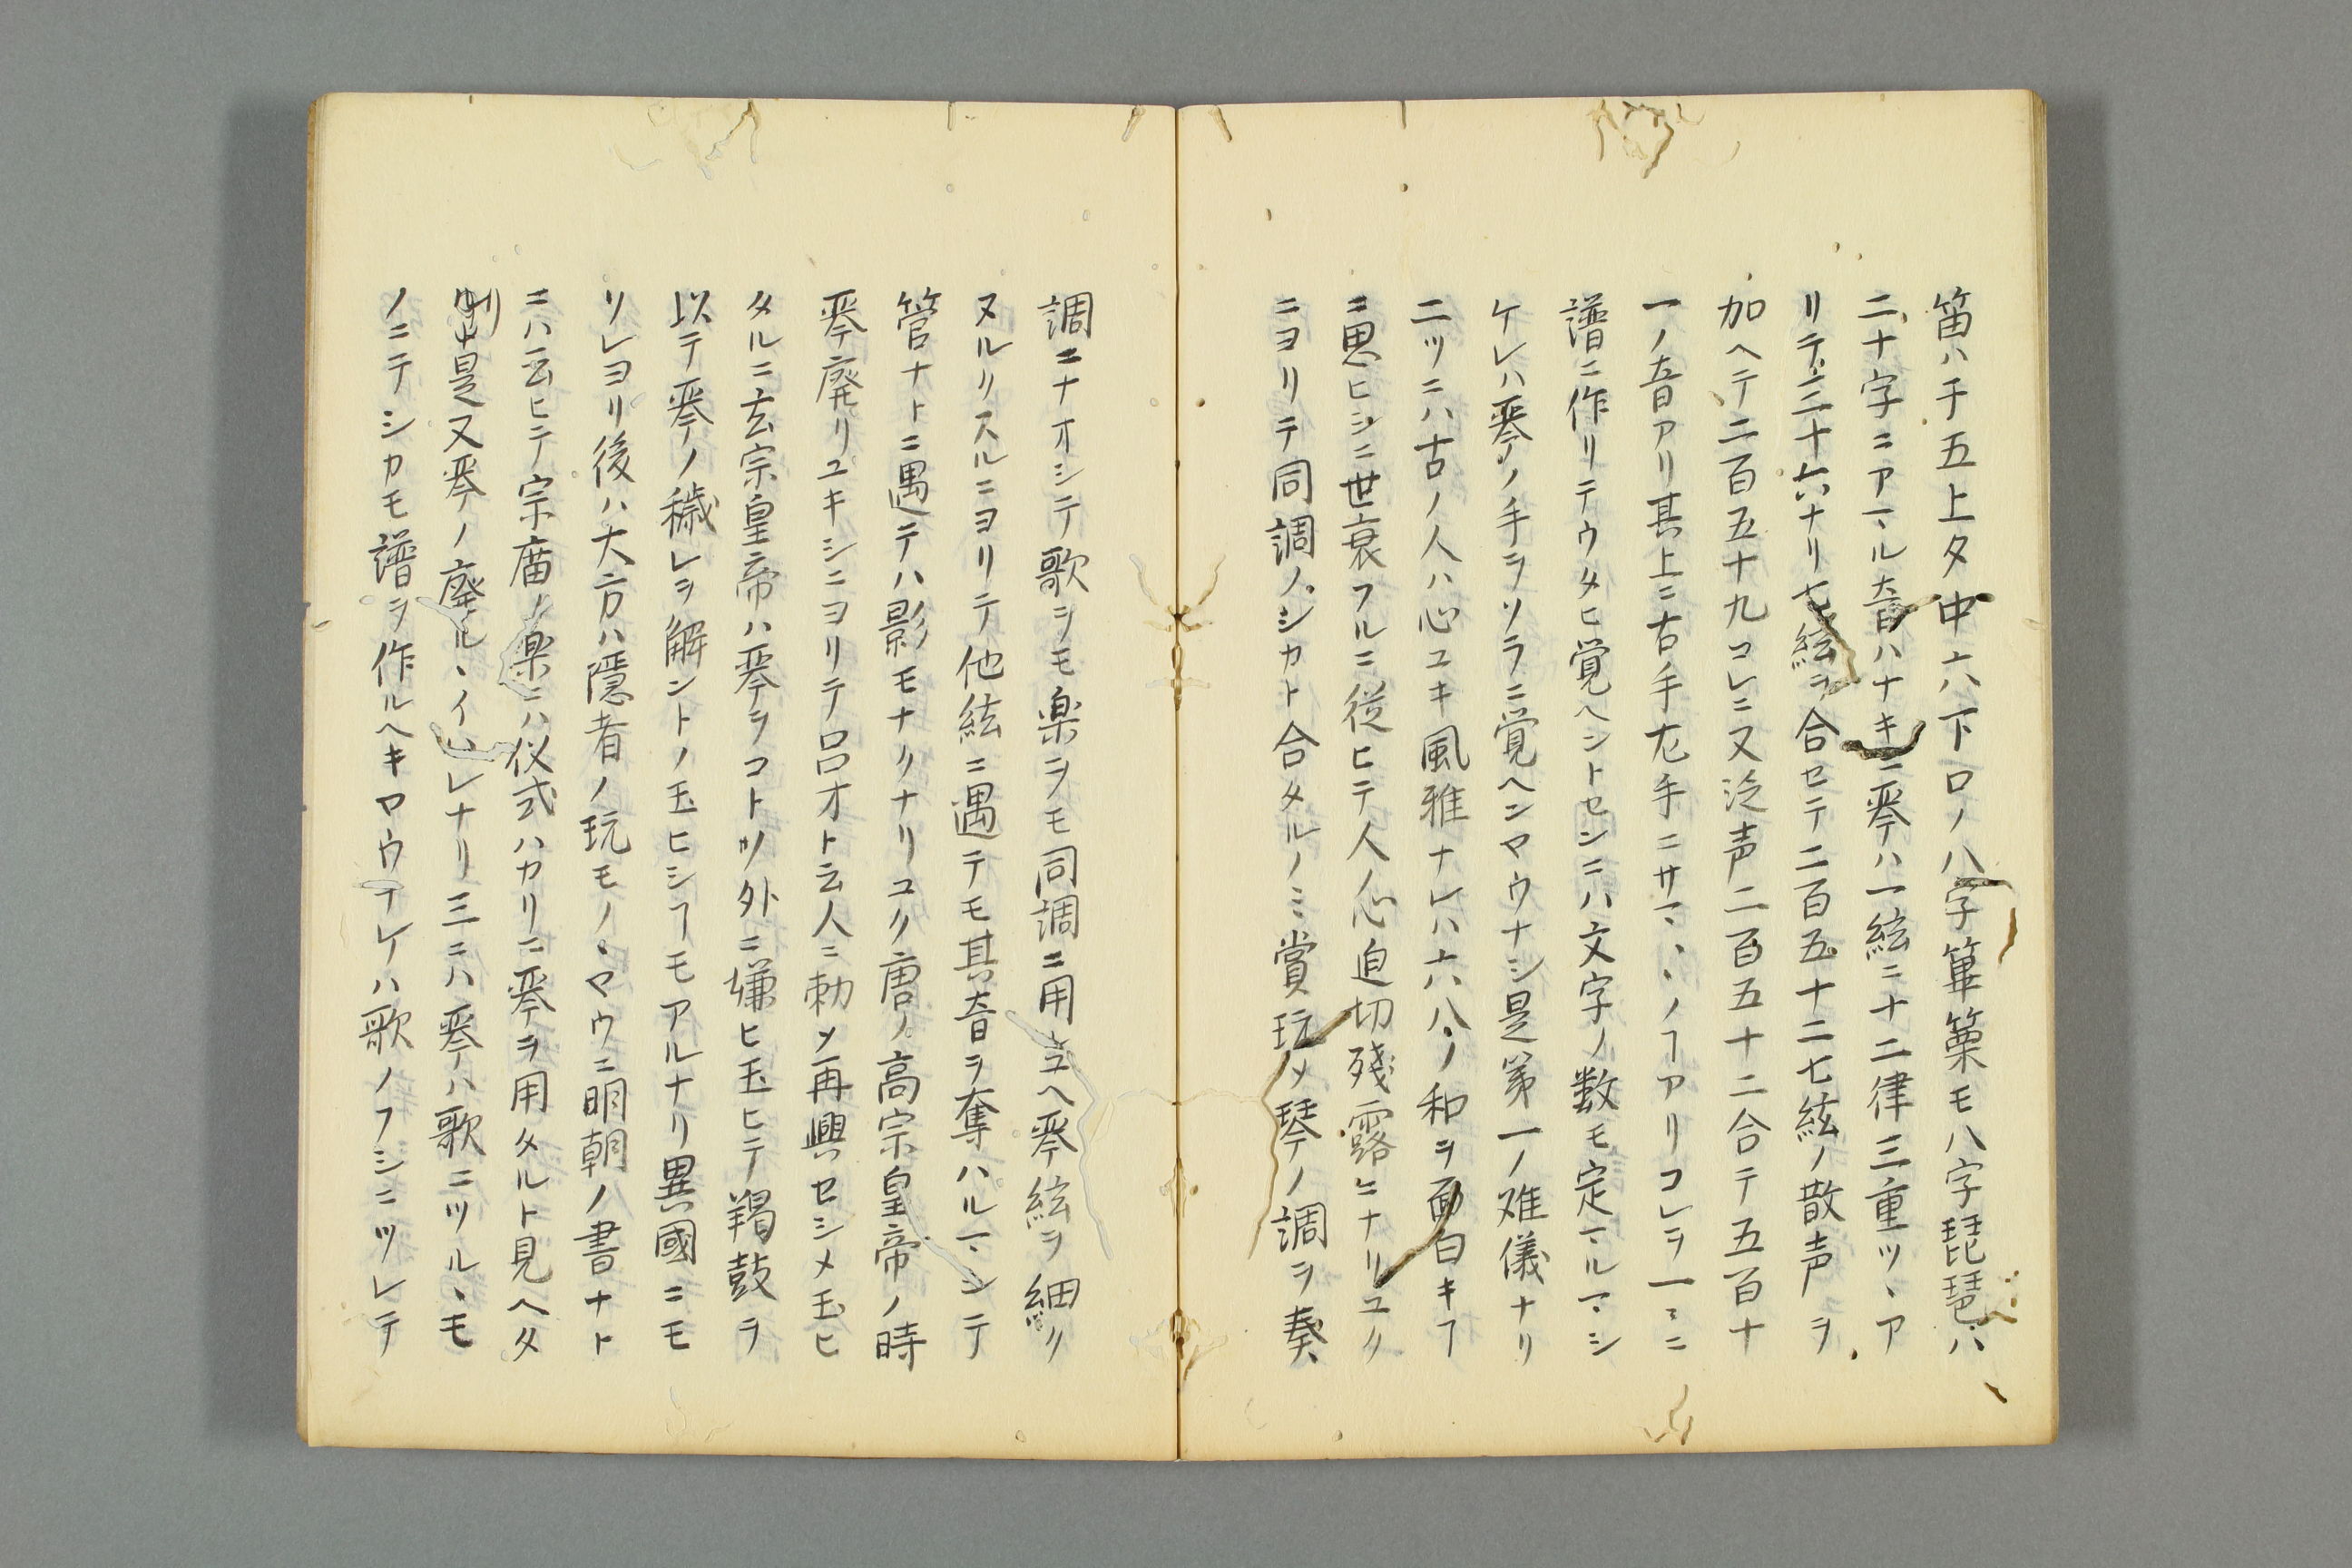 笛ハ干五上夕中六下口ノ八字篳篥モ八字琵琶ハ
二十字ニアマル音ハナキニ琴ハ一絃ニ十二律三重ツヽア
リテ三十六ナリ七絃ヲ合セテ二百五十二七絃ノ散声ヲ
加ヘテ二百五十九コレニ又泛声二百五十二合テ五百十
一ノ音アリ其上ニ右手左手ニサマヽヽノヿアリコレヲ一ミニ
譜ニ作リテウタヒ覚ヘントセンニハ文字ノ数モ定マルマシ
ケレハ琴ノ手ヲソラニ覚ヘンヤウナシ是第一ノ难儀ナリ
二ツニハ古ノ人ハ心ユキ風雅ナレハ六八ノ和ヲ面白キヿ
ニ思ヒシニ世衰フルニ従ヒテ人心迫切殘露ニナリユク
ニヨリテ同調ノシカト合タルノミ賞玩メ琴ノ調ヲ奏
調ニナオシテ歌ヲモ楽ヲモ同調ニ用ユヘ琴絃ヲ細ク
ヌルクスルニヨリテ他絃ニ遇テモ其音ヲ奪ハルマシテ
管ナトニ遇テハ影モナクナリユク唐ノ高宗皇帝ノ時
琴廃リユキシニヨリテ呂才ト云人ニ勅メ再興セシメ玉ヒ
タルニ玄宗皇帝ハ琴ヲコトノ外ニ嫌ヒ玉ヒテ羯鼓ヲ
以テ琴ノ穢レヲ解ントノ玉ヒシヿモアルナリ異國ニモ
ソレヨリ後ハ大方ハ隠者ノ玩モノヽヤウニ明朝ノ書ナト
ニハ云ヒテ宗庙ノ楽ニハ仪式ハカリニ琴ヲ用タルト見ヘタ
リ是又琴ノ廃ルヽイワレナリ三ニハ琴ハ歌ニツルヽモ
ノニテシカモ譜ヲ作ルヘキヤウナケレハ歌ノフシニツレテ